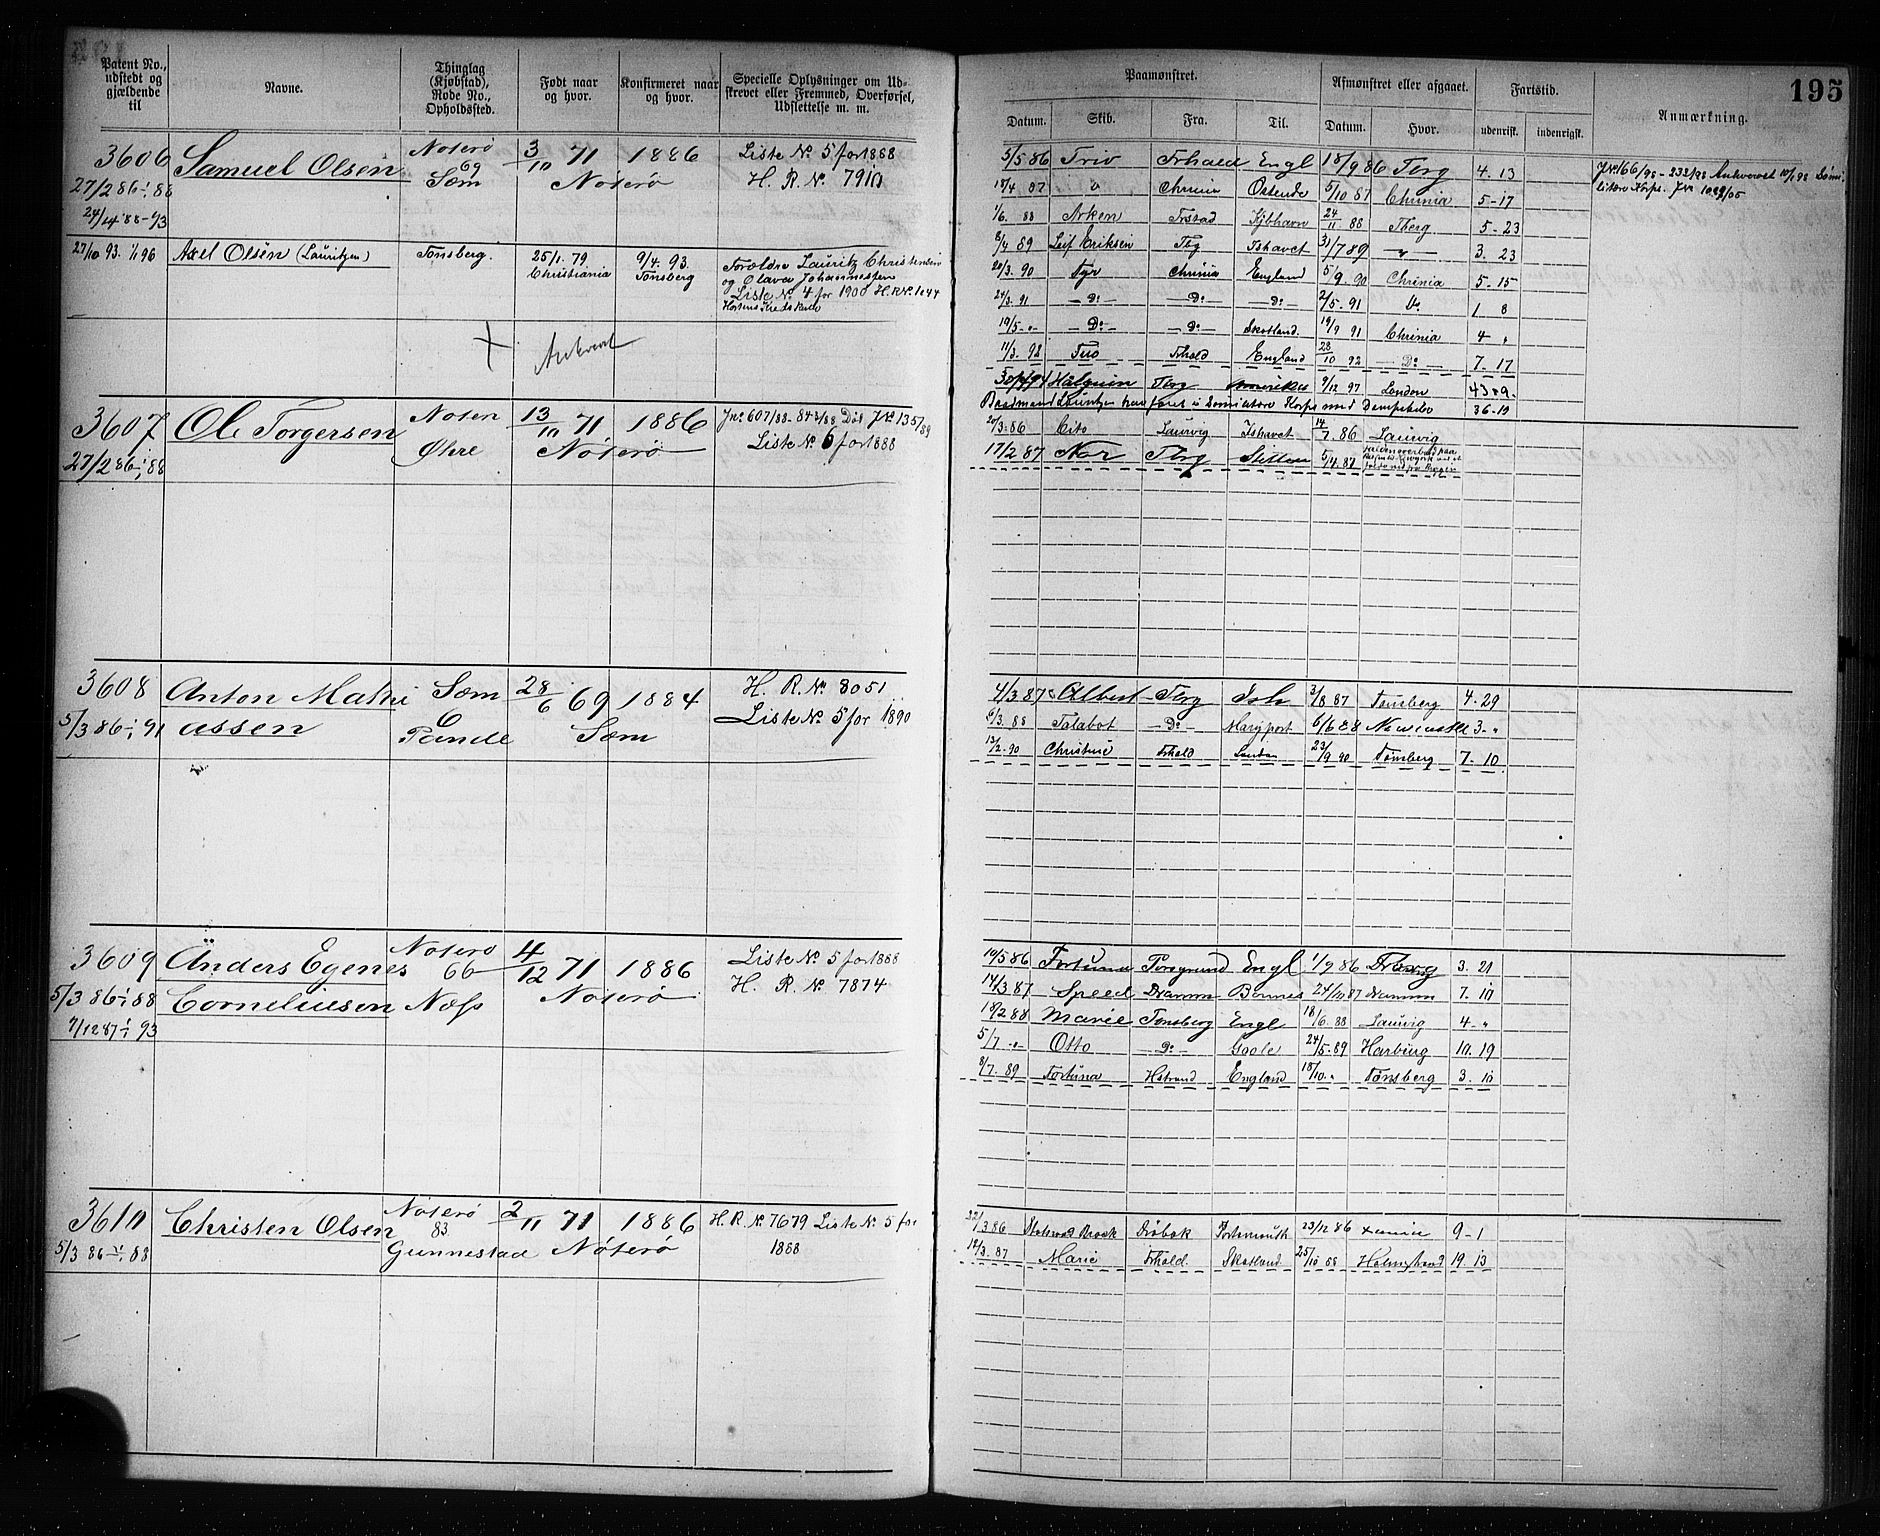 195
Patent No., udstedt og gjældende til
Navne.
Thinglag (Kjøbstad), Rode No., Opholdssted.
Født naar og hvor.
Konfirmeret naar og hvor.
Specielle Oplysninger om Udskrevet eller Fremmed, Overførsel, Udslettelse m. m.
Paamønstret.
Afmønstret eller afgaaet.
Fartstid.
Anmærkning.
Datum. Skib. Fra. Til. Datum. Hvor. udenrisk. indenrigsk.
3606 Samuel Olsen Nøterø 69 Sæm 3/10 71 Nøterø 1886 Liste No 5 for 1888
H. R. No 7910
27/2 86 - 1/1 88
24/4 88 - 93
27/10 93. 1/1 96 Axel Olsen (Lauritzen) Tønsberg. 25/1. 79 Christiania 9/4. 93. Tønsberg Foræ­ldre Lauritz Christensen
og Olava Johannessen
Liste No 4 for 1900 H.R.No 1044
Ankeret
5/5 86 Trio Frhald Engl 18/9 86 Tbrg 4. 13
18/4 87 Chrinia Ostende 5/10 87 Chrinia 5-17
1/6 88 Arken Frstad Kjbhavn 24/11 88 Tberg 5-23
8/4 89 Leif Eriksen Tbg Ishavet 31/7 89 — 〃 — 3. 23
20/3. 90 Tyr Chrinia England 5/9. 90 Chrinia 5-15
24/3. 91 — Do — — Do — — Do — 2/5-91 Do 1 8
19/5-〃 — Do — — Do — Skotland. 19/9 91 Chrinia 4 〃
11/3. 92 Frhald England 28/10 92 — Do — 7. 17
Tbrg 9/12 97 London
36-10
3607 Ole Torgersen Nøterø Øhre 13/10 71 Nøterø 1886 Jno 607/88-843/88 Død JNo 1357/89
Liste No 6 for 1888
27/2 86 - 1/1 88
20/3-86 Cito Laurvig Ishavet 14/7. 86 Laurvig
17/2 87 Nor Tbrg Stettin 5/4. 87
3608 Anton Mathiassen Sæm Pande 28/6 69 Sæm 1884 H. R. No 8051
Liste No 5 for 1890
5/3 86 - 1/1 91
4/3 87 Albert Tbrg Ish 3/8 87 Tønsberg 4-29
6/3. 88 Talabot — Do — Maryport 6/6 88 Newcastle 3-〃
13/2-90 Christine Frhald London 23/9 90 Tønsberg 7-10
3609 Anders Egenes Cornelius­sen Nøterø 66 Næss 4/12 71 Nøterø 1886 Liste No 5 for 1888
H. R. No 7874
5/3 86 - 1/1 88
7/12 87 - 1/1 93
19/5 86 Fortuna Porsgrund Engl 1/9 86 3. 21
14/3 87 Speed Dramm 24/10 87 Dramm 7. 10
18/2 88 Marie Tønsberg Engl 18/6. 88 Laurvig 4-〃
5/7-〃 Otto — Do — Goole 24/5-89 Harburg 10. 19
8/7. 89 Fortuna Hstrand England 18/10-〃 Tønsberg 3. 10
3610 Christen Olsen Nøterø 83 Gunnestad 2/11 71 Nøterø 1886 H. R. No 7679 Liste No 5 for 1888
5/3 86 - 1/1 88
22/3 86 Drøbak Portsmouth 23/12 86 9-1
19/3. 87 Marie Frhald. Skotland 25/10 88 Holmstrand 19. 13